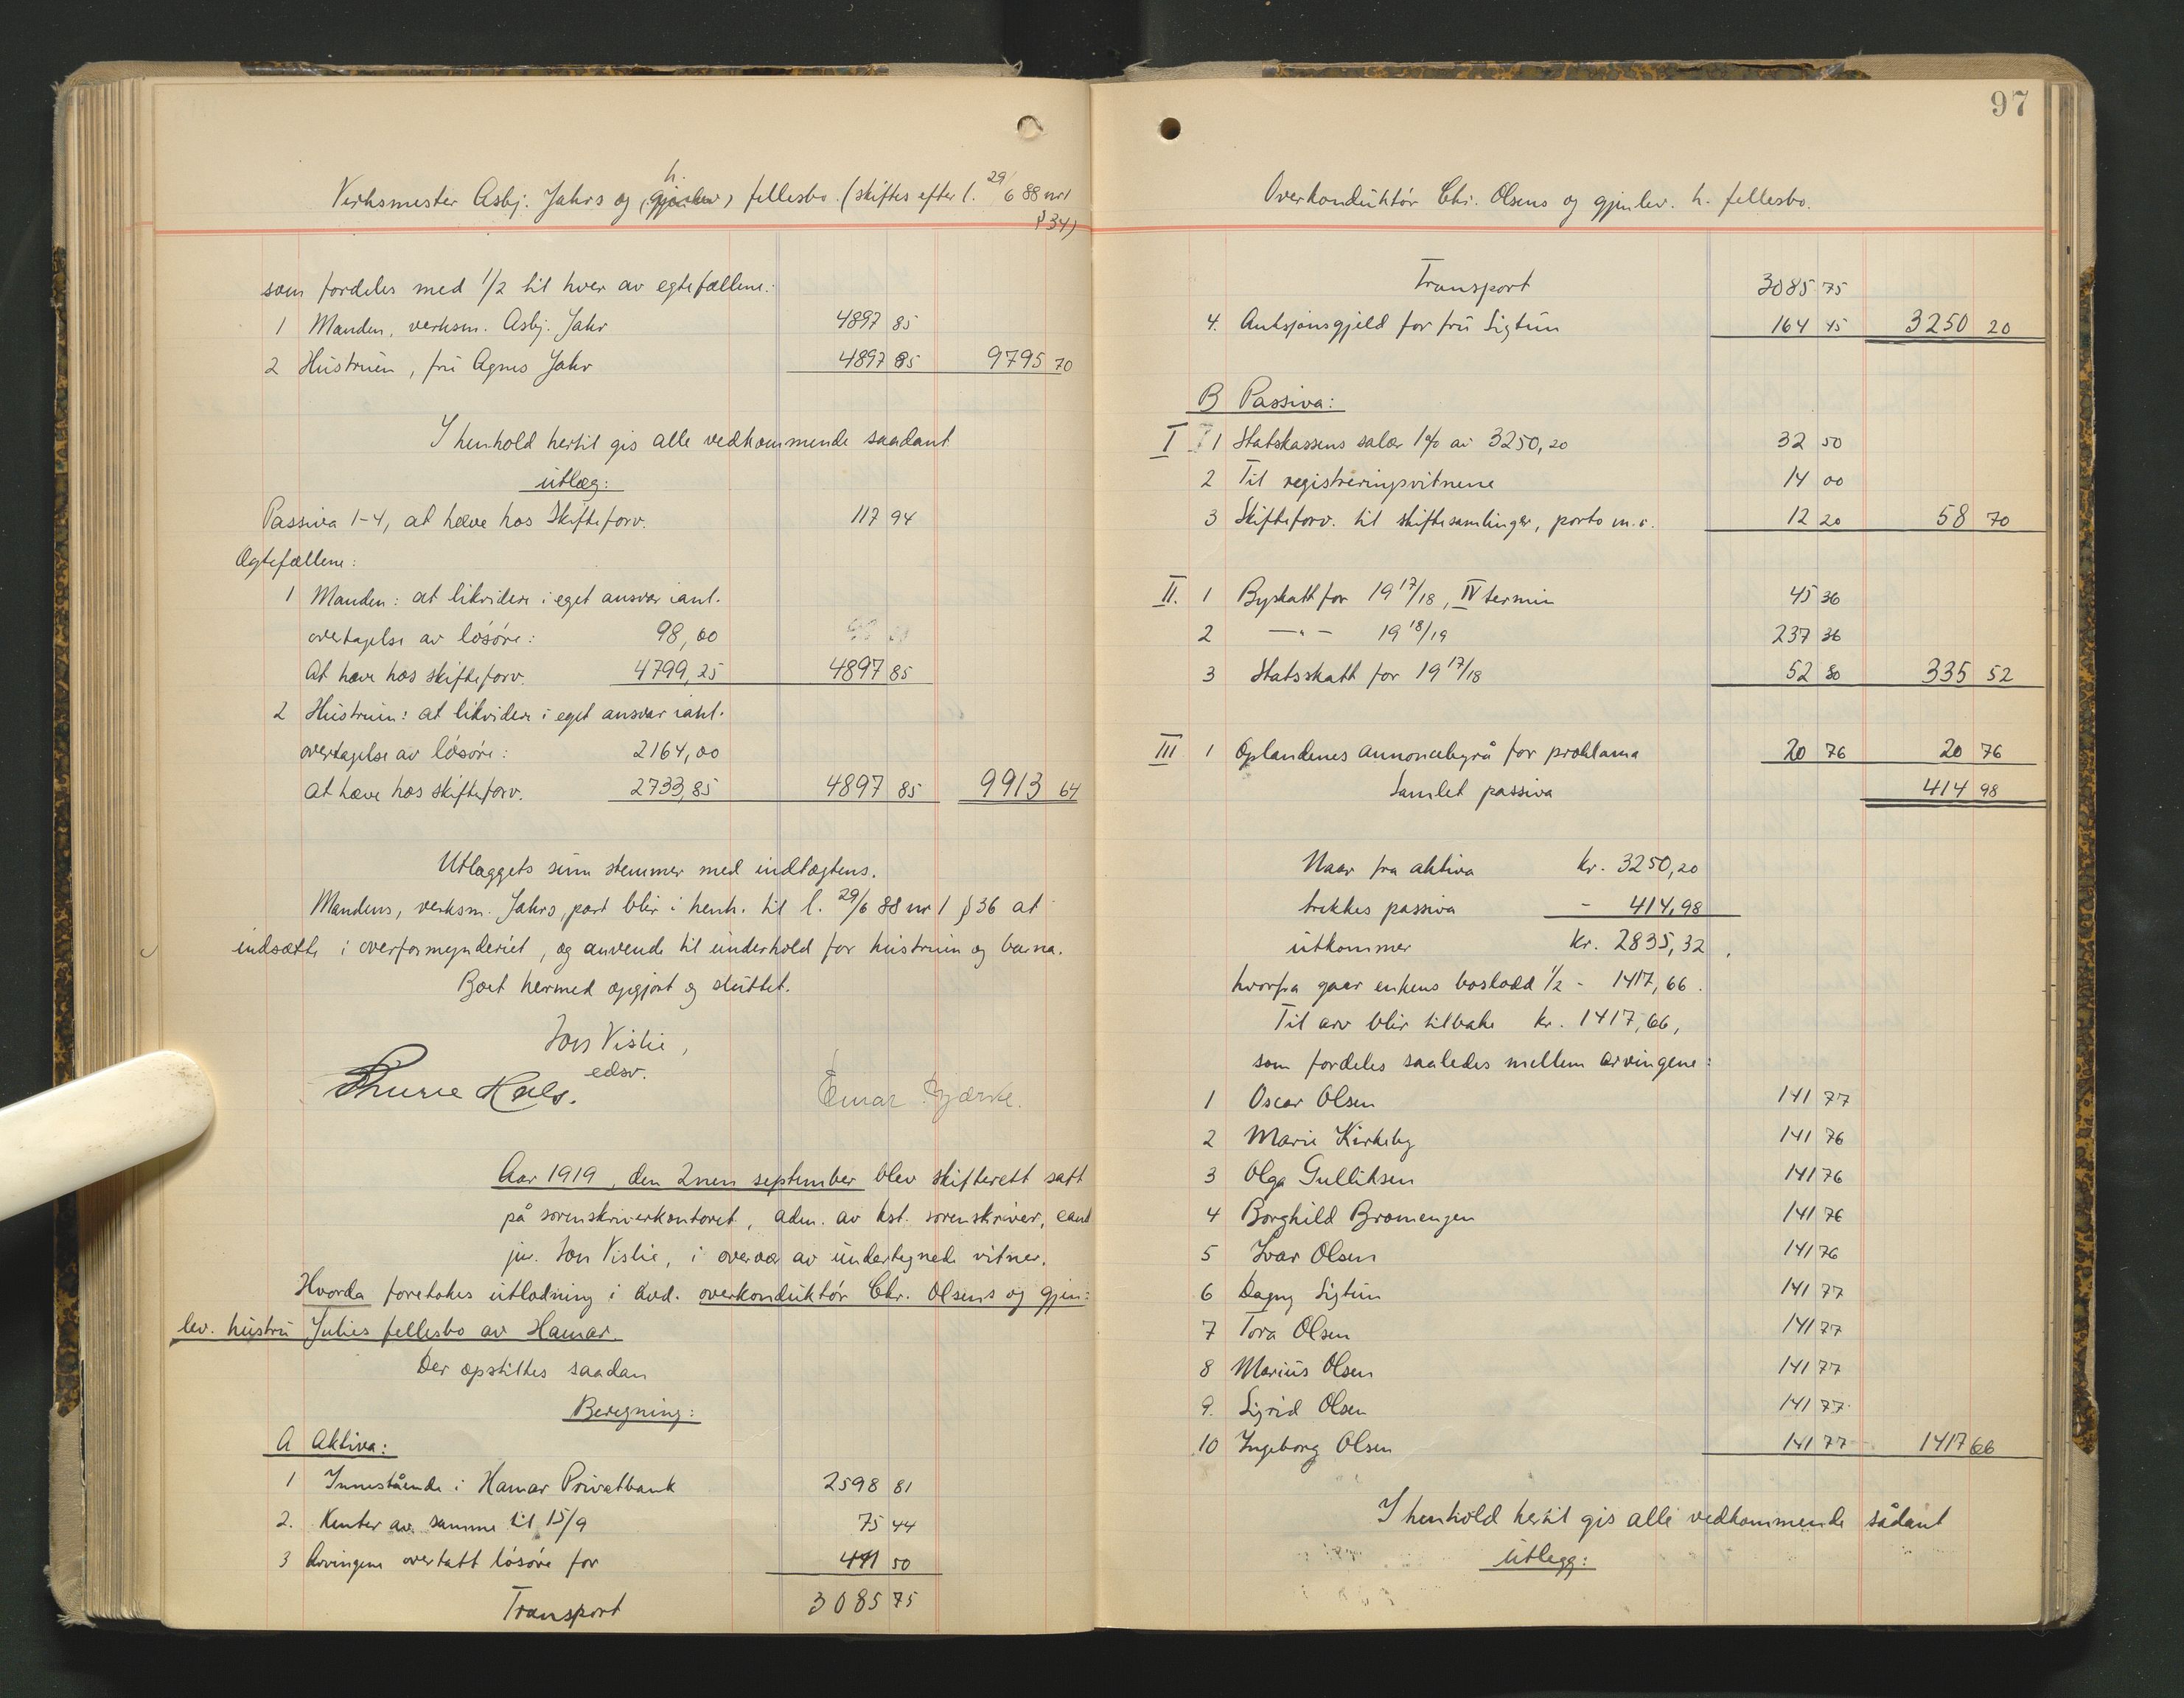 h.
Verksmester Asbj. Jahrs og (gjenlev) fellesbo. (skiftes efter l. 29/6 88 nr 1
§ 34)
som fordeles med 1/2 til hver av egtefællene:
1 Manden, verksm. Asbj. Jahr 4897 85
2 Hustruen, fru Agnes Jahr 4897 85 9795 70
I henhold hertil gis alle vedkommende saadant
utlæg:
Passiva 1-4, at hæve hos Skifteforv. 117 94
Ægtefællene:
1 Manden: at likvidere i eget ansvar ianl.
overtagelse av løsøre: 98,00
At hæve hos skifteforv. 4799,25 4897 85
2 Hustruen: at likvidere i eget ansvar ianl.
overtagelse av løsøre: 2164,00
at hæve hos skifteforv. 2733,85 4897 85 9913 64
Utlæggets sum stemmer med indtægtens.
Mandens, verksm. Jahrs, part blir i henh. til l. 29/6 88 nr 1 § 36 at
indsætte i overformynderiet, og anvende til underhold for hustruen og barna.
Boet hermed opgjort og sluttet.
Jon Vislie,
edsv.
Thurie Hals. Einar Bjerke.
Aar 1919, den 2nen september blev skifterett satt
på sorenskriverkontoret, adm. av kst. sorenskriver, cand
jur. Jon Vislie, i overvær av undertegnede vitner.
Hvorda foretokes utlodning i avd. overkonduktør Chr. Olsens og gjen:
lev. hustru Julies fellesbo av Hamar.
Der opstilles saadan
Beregning:
A Aktiva:
1 Innestående i Hamar Privatbank 2598 81
2. Renter av samme til 15/9 75 44
3 Arvingene overtatt løsøre for 411 50
Transport 3085 75
97
Overkonduktør Chr. Olsens og gjenlev. h. fellesbo.
Transport 3085 75
4. Auksjonsgjeld for fru Sigtun 164 45 3250 20
B Passiva:
I 1 Statskassens salær 1% av 3250,20 32 50
2 Til registreringsvitnene 14 00
3 Skifteforv. til skiftesamlinger, porto m.v. 12 20 58 70
II. 1 Byskatt for 19 17/18, IV termin 45 36
2 —"— 19 18/19 237 36
3 Statsskatt for 19 17/18 52 80 335 52
III 1 Oplandenes annoncebyrå for proklama 20 76 20 76
Samlet passiva 414 98
Naar fra aktiva kr. 3250,20
trekkes passiva - 414,98
utkommer kr. 2835,32.
hvorfra gaar enkens boslodd 1/2 - 1417,66.
Til arv blir tilbake kr. 1417,66,
som fordeles saaledes mellem arvingene:
1 Oscar Olsen 141 77
2 Marie Kirkeby 141 76
3 Olga Gulliksen 141 76
4 Borghild Bromengen 141 76
5 Ivar Olsen 141 76
6 Dagny Sigtun 141 77
7 Tora Olsen 141 77
8 Marius Olsen 141 77
9. Sigrid Olsen 141 77
10 Ingeborg Olsen 141 77 1417 66
I henhold hertil gis alle vedkommende sådant
utlegg: